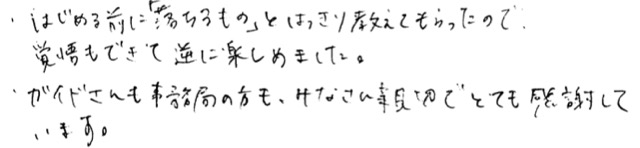 ・はじめる前に「落ちるもの」とはっきり教えてもらったので、
覚悟もできて逆に楽しめました。
・ガイドさんも事務局の方も、みなさん親切でとても感謝して
います。